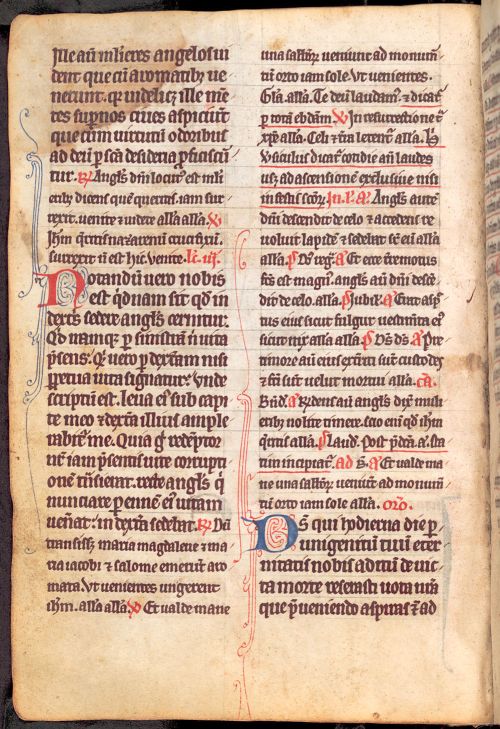 Ille aut mlieres angelos vi
dent que cu aromatibz ve
nerunt. qr videlicz ille me
tes supnos cives aspiciut
que cum virtutu odoribus
ad deu p sca desideria pficiscu
tur. R Angls dni locut est mli
erib dicens que queritis. iam sur
rexit. venite et videte alla alla. V
Ihm qritis nazarenu crucifixu.
surrexit n est hic. Venite. Lc. iij.
Notandu vero nobis
est qdnam sit qd in
dextris sedere angls cernitur.
Qd namqz p sinistra n vita
psens. Qz vero p dextam nisi
perpetua vita signatur. Vnde
scriptu est. leva ei sub capi
te meo et dexta illius ample
xabit me. Quia g redeptor
nr iam psentis vite corrupti
one tnsierat. recte angls q
nunciare perenne ei vitam
venat. in dexta sedebat. R Du
transisset maria magdalene et ma
ria iacobi et salome emerut aro
mata. Vt venientes ungerent
ihm. alla alla. V Et valde mane
una sabbor veniut ad monum
tu orto iam sole. Vt venientes.
Gla. alla. Te deu laudam. et dicat
p tota ebdam. V In resurrectione t
xpe alla. Celi et tra letent alla. Hic
Vsiculus dicat cotidie an laudes
usqz ad ascensione exclusive nisi
in festis scor. In. l. A. Angls aute
dni descendit de celo et accedens re
volvit lapide et sedebat sr eu alla
alla. P Ds reg. A Et ecce tremotus
fcs est magn. angls aut dni desce
dit de celo. alla. P Iubil. A Erat asp
tus eius sicut fulgur vestimta ei
sicut nix alla alla. P Ds ds. A Pre
timore aut eius extriti sut custodes
et fci sut velut mortui alla. ca.
Bnd. A Rndens aut angls dix muli
erib nolite timere. scio eni qd ihm
qritis alla. P laud. Post pdca a. sta
tim incipiat. ad B. A Et valde ma
ne una sabbor veniut ad monum
tu orto iam sole alla. oro.
Ds qui hodierna die p
unigenitum tuu eter
nitatis nobis aditu de vic
ta morte reserasti vota nra
que pveniendo aspiras et ad